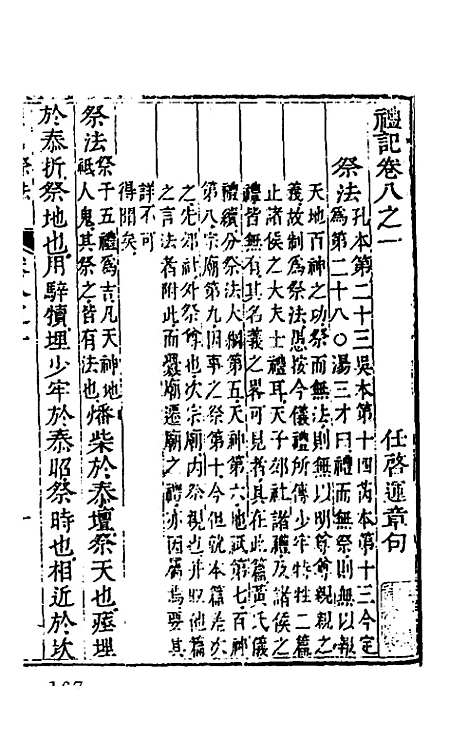 禮記卷八之一
任啓運章句
祭法孔本第二十三吳本第十四芮本第十三今定
為第二十八○湯三才曰禮而無祭則無以報
天地百神之功祭而無法則無以明尊尊親親之
義故制為祭法愚按今儀禮所傳少牢特牲二篇
止諸侯之大夫士禮耳天子郊社諸禮及諸侯之
禮皆無有其名義之畧可見者具在此篇黃氏儀
禮續分祭法大綱第五天神第六地祇第七百神
第八宗廟第九因事之祭第十今但就本篇差次
之先郊社外祭尊也次宗廟内祭親也并取他篇
之言法者附此而釁廟遷廟之禮亦因屬焉要其
詳不可
得聞矣
祭法祭于五禮為吉凡天神地
祇人鬼其祭之皆有法也燔柴於泰壇祭天也瘞埋
於泰折祭地也用騂犢埋少牢於泰昭祭時也相近於坎
167